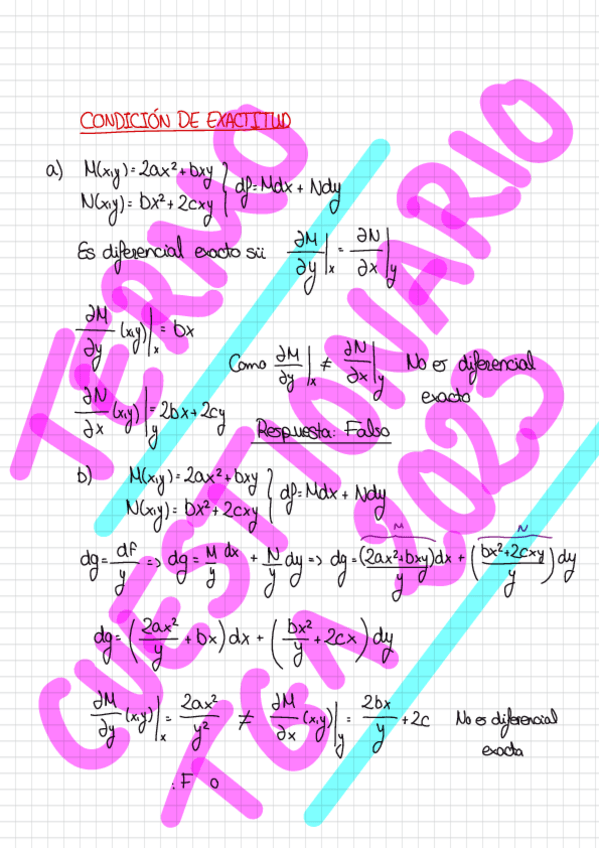 CONDICIÓN DE EXACTITUD
a) M(x,y) = 2ax² + bxy
N(x,y) = bx² + 2cxy } df = Mdx + Ndy
Es diferencial exacto sii ∂M/∂y|x = ∂N/∂x|y
∂M/∂y (x,y)|x = bx
Como ∂M/∂y|x ≠ ∂N/∂x|y No es diferencial exacto
∂N/∂x (x,y)|y = 2bx + 2cy
Respuesta: Falso
b) M(x,y) = 2ax² + bxy
N(x,y) = bx² + 2cxy } df = Mdx + Ndy
M N
dg = df/y => dg = M/y dx + N/y dy => dg = (2ax² + bxy)/y dx + ((bx² + 2cxy)/y) dy
dg = (2ax²/y + bx) dx + (bx²/y + 2cx) dy
∂M/∂y (x,y)|x = 2ax²/y² ≠ ∂M/∂x (x,y)|y = 2bx/y + 2c No es diferencial exacta
: F o
TERMO
CUESTIONARIO
TGA 2023